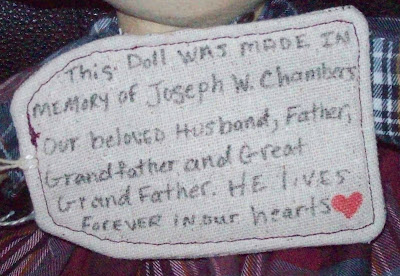 This Doll WAS MADE IN
MEMORY of Joseph W. Chambers
Our beloved Husband, Father,
Grandfather and Great
Grand Father. HE lives
Forever in our hearts